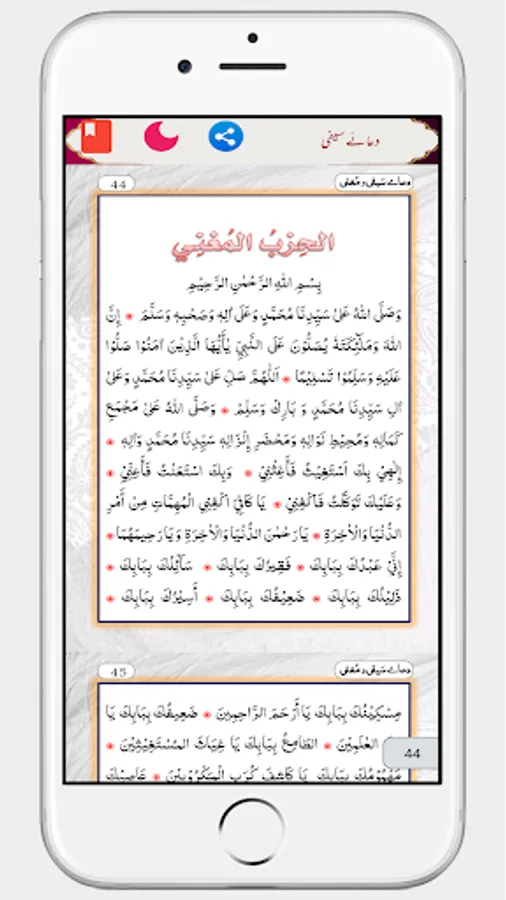 دعائے سیفی
44
دعاے سیفی و مغنی
الحِزْبُ المُغنِّي
بِسْمِ اللهِ الرَّحْمٰنِ الرَّحِيْمِ
وَصَلَّى اللهُ عَلىٰ سَيِّدِنَا مُحَمَّدٍ وَعَلٰى اٰلِهٖ وَصَحْبِهٖ وَسَلَّمَ * إِنَّ
اللهَ وَمَلٰٓئِكَتَهٗ يُصَلُّوْنَ عَلَى النَّبِيِّ يٰٓأَيُّهَا الَّذِيْنَ اٰمَنُوْا صَلُّوْا
عَلَيْهِ وَسَلِّمُوْا تَسْلِيْمًا * اَللّٰهُمَّ صَلِّ عَلىٰ سَيِّدِنَا مُحَمَّدٍ وَعَلىٰ
اٰلِ سَيِّدِنَا مُحَمَّدٍ وَ بَارِكْ وَسَلِّمْ * وَصَلَّى اللهُ عَلىٰ مَجْمَعِ
كَمَالِهٖ وَمُحِيْطِ نَوَالِهٖ وَمَحْضَرِ إِنْزَالِهٖ سَيِّدِنَا مُحَمَّدٍ وَاٰلِهٖ *
إِلٰهِيْ بِكَ اَسْتَغِيْثُ فَأَغِثْنِيْ * وَبِكَ اسْتَعَنْتُ فَأَعِنِّيْ *
وَعَلَيْكَ تَوَكَّلْتُ فَاكْفِنِيْ * يَا كَافِيْ اكْفِنِي الْمُهِمَّاتِ مِنْ أَمْرِ
الدُّنْيَا وَالْاٰخِرَةِ * يَارَحْمٰنَ الدُّنْيَا وَالْاٰخِرَةِ وَيَارَحِيْمَهُمَا *
إِنِّيْ عَبْدُكَ بِبَابِكَ * فَقِيْرُكَ بِبَابِكَ * سَآئِلُكَ بِبَابِكَ *
ذَلِيْلُكَ بِبَابِكَ * ضَعِيْفُكَ بِبَابِكَ * أَسِيْرُكَ بِبَابِكَ *
45
دعاے سیفی و مغنی
مِسْكِيْنُكَ بِبَابِكَ يَا أَرْحَمَ الرَّاحِمِيْنَ * ضَعِيْفُكَ بِبَابِكَ يَا
الْعٰلَمِيْنَ * الطَّامِعُ بِبَابِكَ يَا غِيَاثَ الْمُسْتَغِيْثِيْنَ *
44
مَهْمُوْمُكَ بِبَابِكَ يَا كَاشِفَ كُرَبِ الْمَكْرُوْبِيْنَ * عَاصِيْكَ